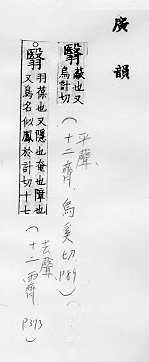 廣韻
翳 蔽也又
烏計切
(十二齊 烏奚切 P89)
平聲
翳 羽葆也又隱也奄也障也
又鳥名似鳳於計切十七
(十二霽 P373)
去聲